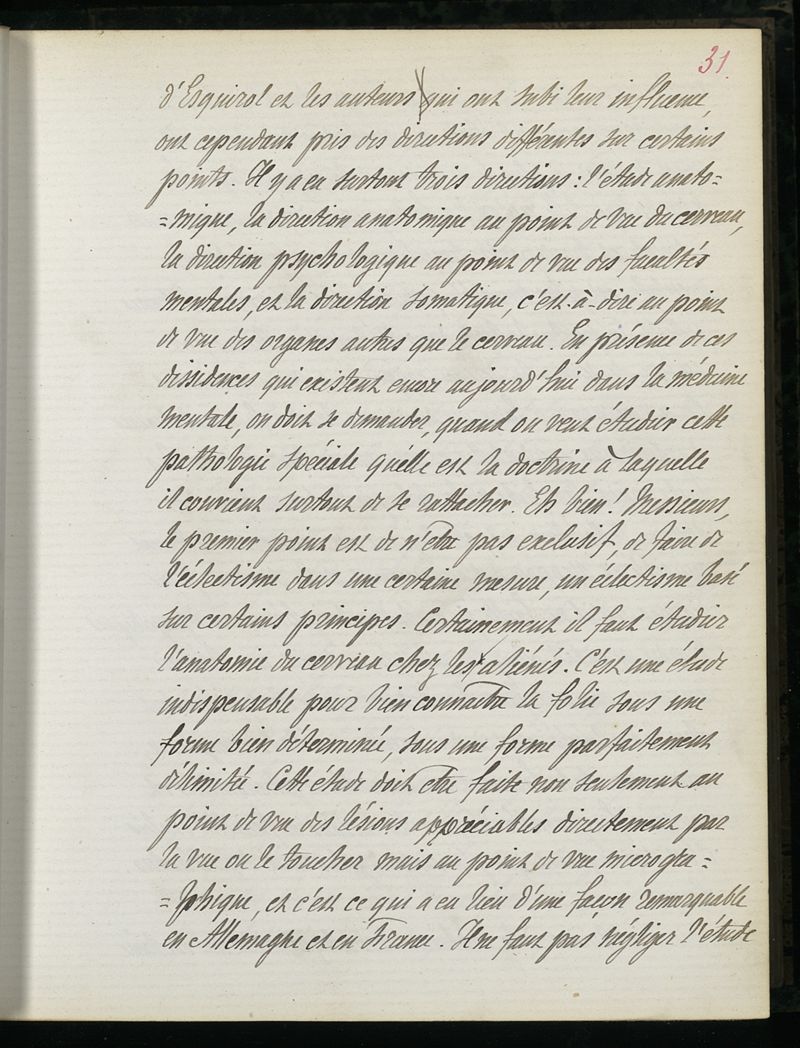 31
d'Esquirol et les auteurs qui ont subi leur influence,
ont cependant pris des directions différentes sur certains
points. Il y a eu surtout trois directions : l'étude anato=
=mique, la direction anatomique au point de vue du cerveau,
la direction psychologique au point de vue des facultés
mentales, et la direction somatique, c'est-à-dire au point
de vue des organes autres que le cerveau. En présence de ces
dissidences qui existent encore aujourd'hui dans la médecine
mentale, on doit se demander, quand on veut étudier cette
pathologie spéciale quélle est la doctrine à laquelle
il convient surtout de se rattacher. Eh bien! Messieurs,
le premier point est de n'être pas exclusif, de faire de
l'éclectisme dans une certaine mesure, un éclectisme basé
sur certains principes. Certainement il faut étudier
l'anatomie du cerveau chez les aliénés. C'est une étude
indispensable pour bien connaître la folie sous une
forme bien déterminée, sous une forme parfaitement
délimitée. Cette étude doit être faite non seulement au
point de vue des lésions appréciables directement par
la vue ou le toucher mais au point de vue microgra=
=phique, et c'est ce qui a eu lieu d'une façon remarquable
en Allemagne et en France. Il ne faut pas négliger l'étude